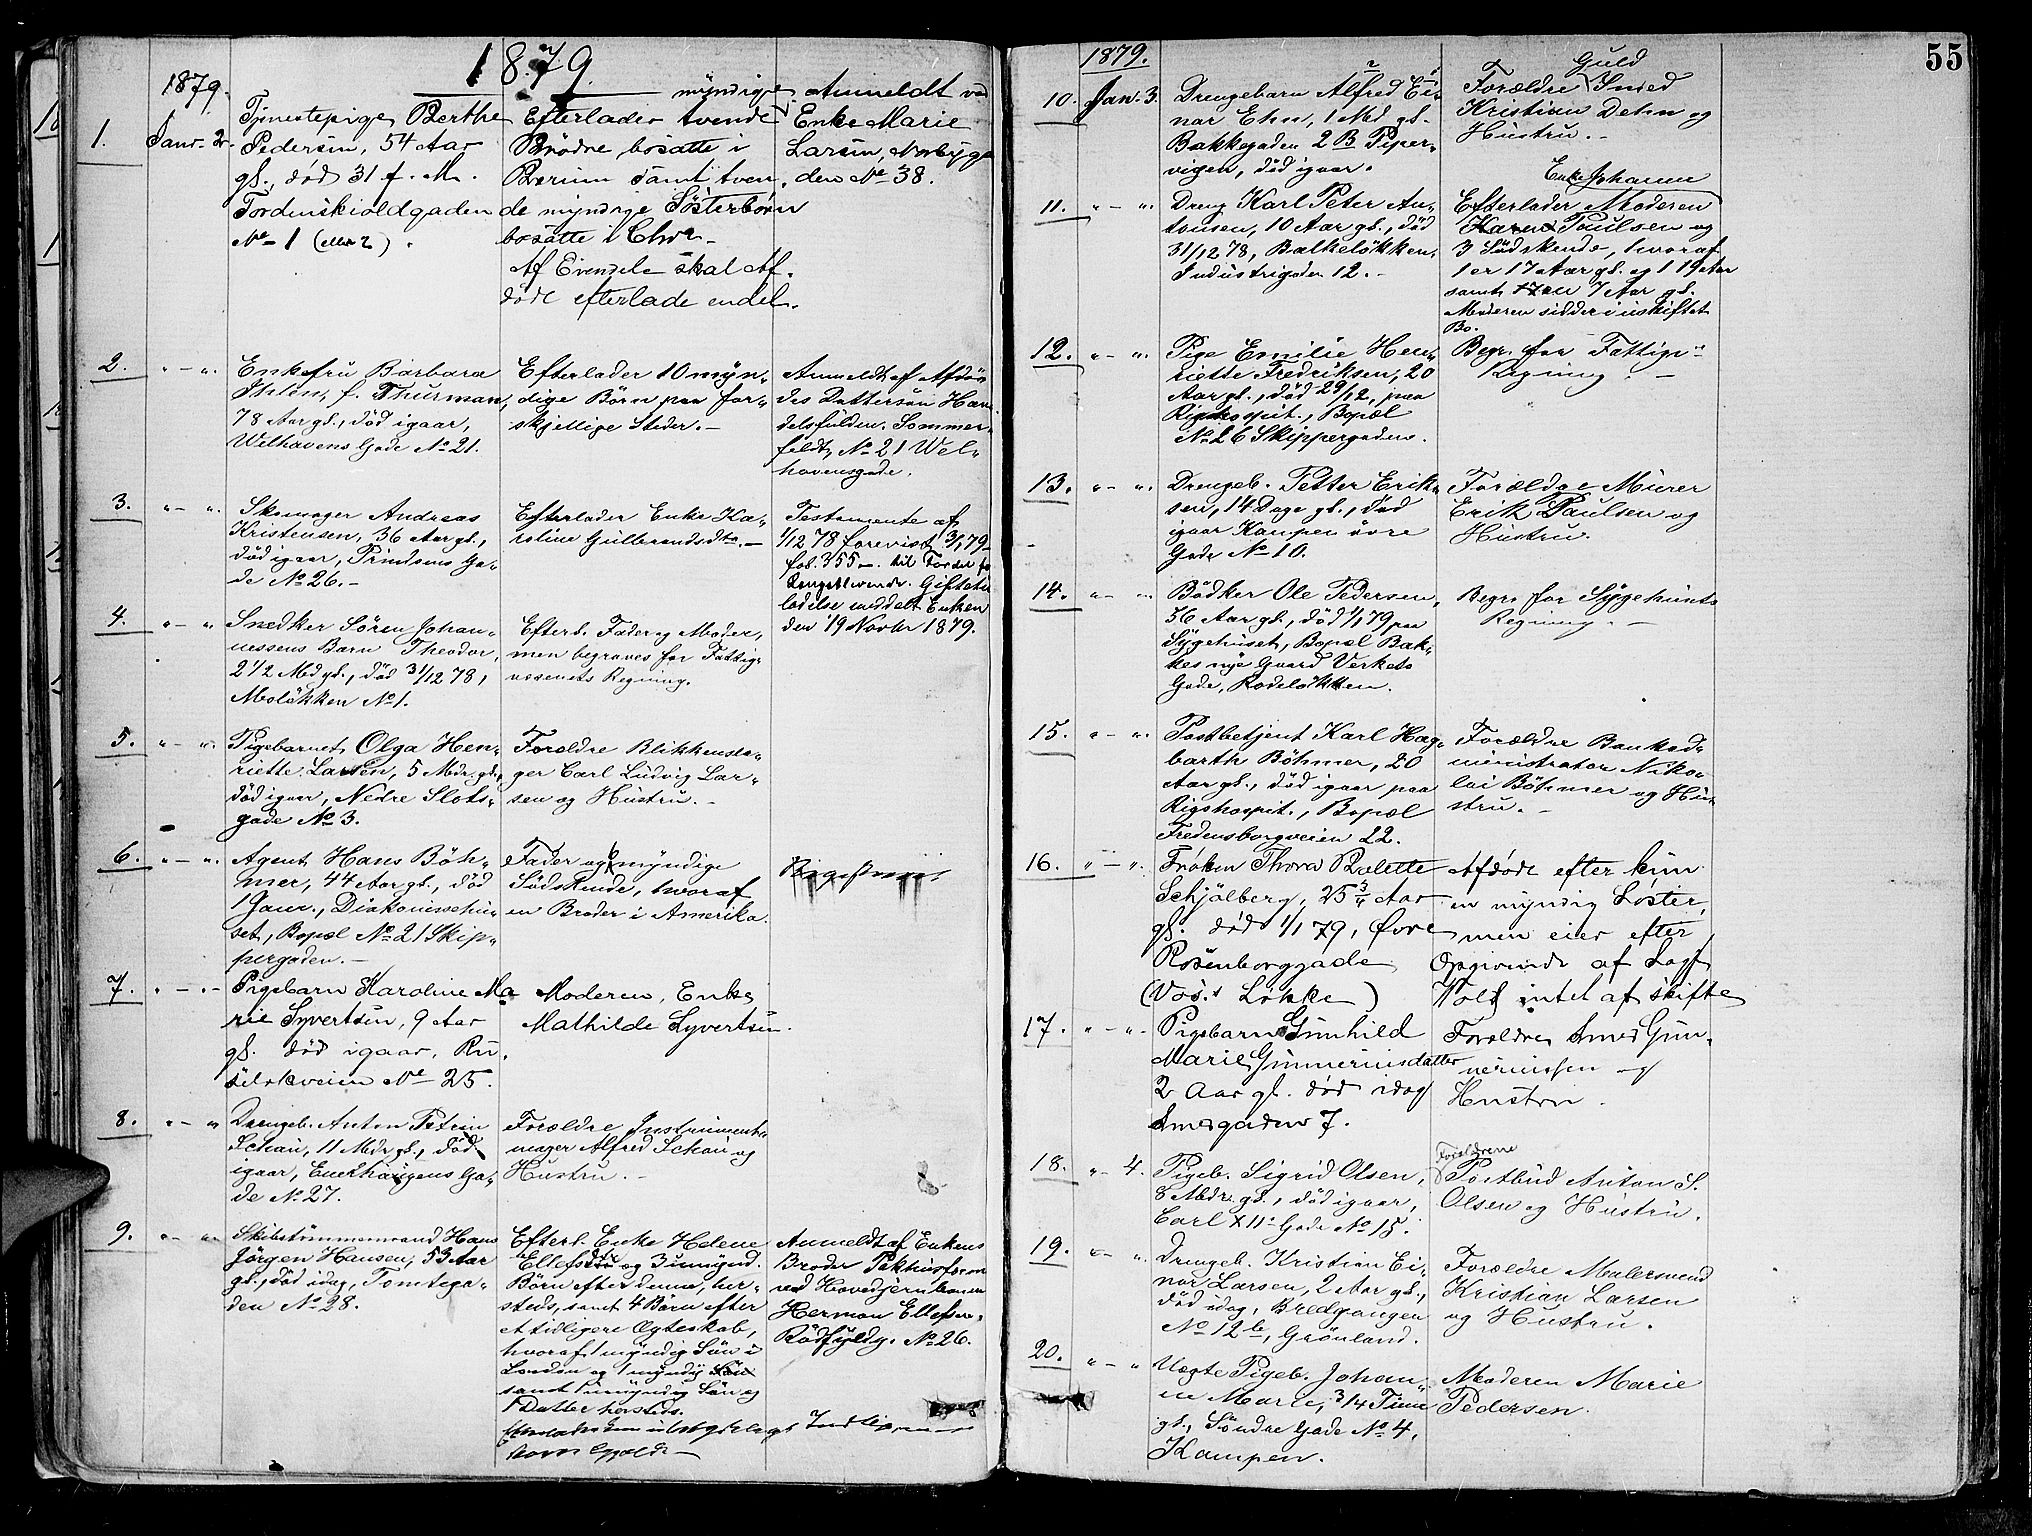 1879.
1879.
1.
Janr. 2.
Tjenestepige Berthe
Pedersen, 54 Aar
gl., død 31 f. M.
Tordenskioldgaden
No 1 (eller 2).
myndige
Efterlader tvende
Brødre bosatte i
Bærum samt tven-
de myndige Søsterbørn
bosatte i Chra.
Af Eiendele skal Af-
døde efterlade endel.
Anmeldt ved
Enke Marie
Larsen, Norbyga-
den No 38.
2.
" - "
Enkefru Barbara
Ihlen, f. Thurman,
78 Aar gl., død igaar,
Welhavens Gade No 21.
Efterlader 10 myn-
dige Børn paa for-
skjellige Steder. -
Anmeldt af Afdø-
des Dattersøn Han-
delsfuldm. Sommer-
feldt, No 21 Wel-
havensgade.
3.
" - "
Skomager Andreas
Kristensen, 36 Aar gl.,
død igaar, Prindsens Ga-
de No 26. -
Efterlader Enke Ka-
roline Gulbrandsdtr. -
Testamente af
1/12 78 forevist 3/1 79
fol. 355
Længstlevende. Giftetil-
ladelse meddelt Enken
den 19 Novbr 1879.
4.
" - "
Snedker Sören Johan-
nessens Barn Theodor,
2 1/2 Md gl., død 31/12 78,
Mosløkken No 1.
Efterl. Fader og Moder,
men begraves for Fattig-
væsenets Regning.
5.
" - "
Pigebarnet Olga Hen-
riette Larsen, 5 Mdr. gl.,
død igaar, Nedre Slots-
gade No 3.
Forældre Blikkensla-
ger Carl Ludvig Lar-
sen og Hustru. -
6.
" - "
Agent Hans Böh-
mer, 44 Aar gl., død
1 Janr., Diakonissehu-
set, Bopæl No 21 Skip-
pergaden. -
Fader og 6 myndige
Södskende, hvoraf
en Broder i Amerika.
7.
" - "
Pigebarn Karoline Ma-
rie Syvertsen, 9 Aar
gl. død igaar, Ru-
selökveien No 25.
Moderen, Enke
Mathilde Syvertsen.
8.
" - "
Drengeb. Anton Petrin
Schau, 11 Mdr. gl., død
igaar, Enerhaugens Ga-
de No 27.
Forældre Instrument-
mager Alfred Schau og
Hustru. -
9.
" - "
Skibstömmermand Hans
Jörgen Hansen, 53 Aar
gl., død idag, Tomtega-
den No 28.
Efterl. Enke Helene
Ellefsdtr og 3 umynd.
Börn efter denne, her-
steds, samt 4 Börn efter
et tidligere Ægteskab,
hvoraf 1 myndig Sön i
London og 1 myndig Sön
samt 1 umyndig Sön og
1 Datter hersteds.
Anmeldt af Enkens
Broder Pakhusform.
ved Hovedjernbanen
Herman Ellefsen,
Rödfyldg. No 26.
55
1879.
10.
Jan. 3.
Drengebarn Alfred Ei-
nar Ehn, 1 Md gl.
Bakkegaden 2 B Piper-
vigen, død igaar.
Guld
Forældre Smed
Kristian Dehn og
Hustru. -
11.
" - "
Dreng Karl Peter An-
tonsen, 10 Aar gl., død
31/12 78, Balkeløkken,
Industrigaden 12. -
Enke Johanne
Efterlader Moderen
Karen Paulsen og
3 Södskende, hvoraf
1 er 17 Aar gl. og 1 19 Aar
samt 7 Aar gl.
Moderen sidder i uskiftet
Bo.
12.
" - "
Pige Emilie Hen-
riette Fredriksen, 20
Aar gl., død 29/12, paa
Rigshospit., Bopæl
No 26 Skippergaden.
Begr. for Fattigv.
Regning. -
13.
" - "
Drengeb. Petter Erik-
sen, 14 Dage gl., død
igaar Kampen övre
Gade No 10.
Forældre Murer
Erik Paulsen og
Hustru.
14.
" - "
Bödker Ole Pedersen,
36 Aar gl., død 1/1 79 paa
Sygehuset, Bopæl Bak-
kes nye Gaard Verksts
Gade, Rodeløkken.
Begr. for Sygehusets
Regning. -
15.
" - "
Postbetjent Karl Hag-
barth Böhmer, 20
Aar gl., død igaar paa
Rigshospit., Bopæl
Fredensborgveien 22.
Forældre Bankad-
ministrator Niko-
lai Böhmer og Hu-
stru. -
16.
" - "
Fröken Thora Bolette
Schjölberg, 25 3/4 Aar
gl. død 1/1 79, Øvre
Rosenborggade
(Vos.s Løkke)
Afdøde efter kun
en myndig Søster,
men eier efter
Opgivende af
Wolf intet af skifte
17.
" - "
Pigebarn Gunhild
Marie Gunneriusdatter
2 Aar gl. død idag
Smedgaden 7.
Forældre Smed Gun-
neriussen og
Hustru.
18.
" - 4.
Pigeb. Sigrid Olsen,
8 Mdr. gl., død igaar,
Carl XIIs Gade No 15.
Forældrene
Postbud Anton S.
Olsen og Hustru.
19.
" - "
Drengeb. Kristian Ei-
nar Larsen, 2 Aar gl.,
død idag, Bredgangen
No 12b, Grönland.
Forældre Malersvend
Kristian Larsen
og Hustru.
20.
" - "
Uægte Pigeb. Johan-
ne Marie, 3/4 Time
gl., Söndre Gade No 4,
Kampen.
Moderen Marie
Pedersen.